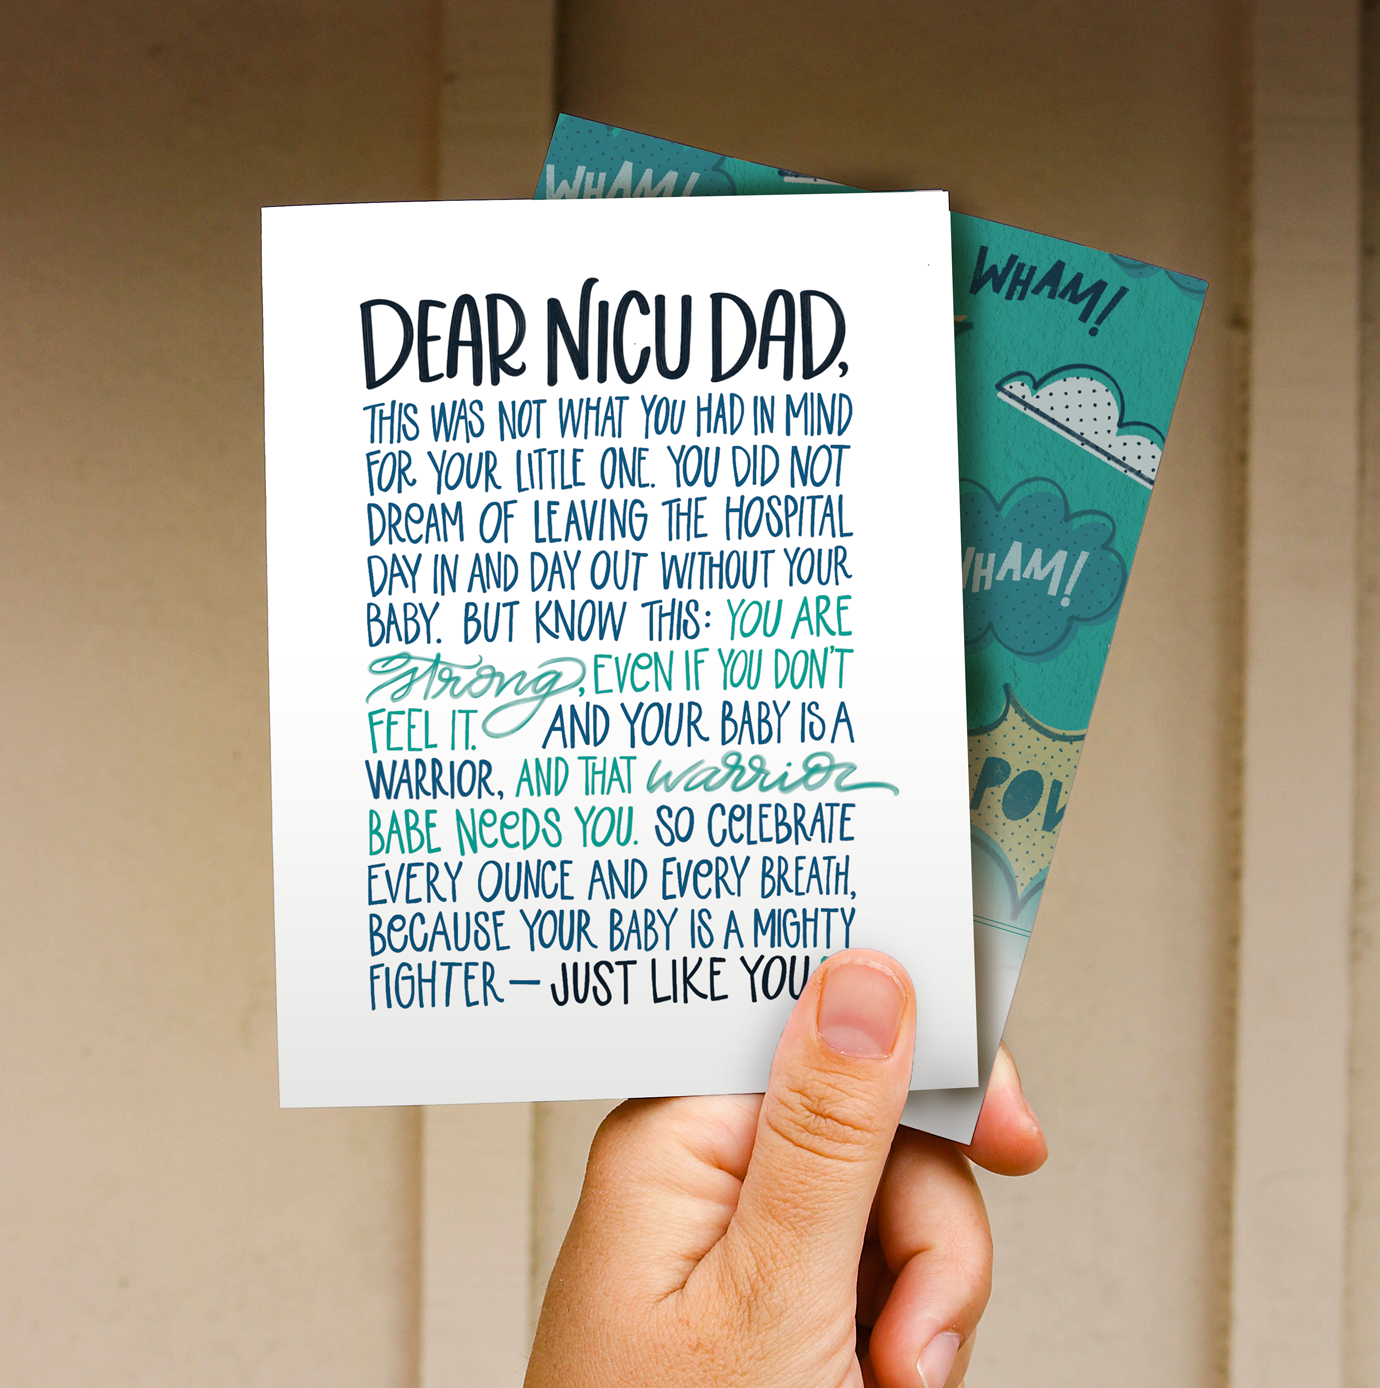 DEAR NICU DAD,
THIS WAS NOT WHAT YOU HAD IN MIND
FOR YOUR LITTLE ONE. YOU DID NOT
DREAM OF LEAVING THE HOSPITAL
DAY IN AND DAY OUT WITHOUT YOUR
BABY. BUT KNOW THIS: YOU ARE
strong, EVEN IF YOU DON'T
FEEL IT. AND YOUR BABY IS A
WARRIOR, AND THAT warrior
BABE NEEDS YOU. SO CELEBRATE
EVERY OUNCE AND EVERY BREATH,
BECAUSE YOUR BABY IS A MIGHTY
FIGHTER — JUST LIKE YOU
WHAM!
WHAM!
WHAM!
POW